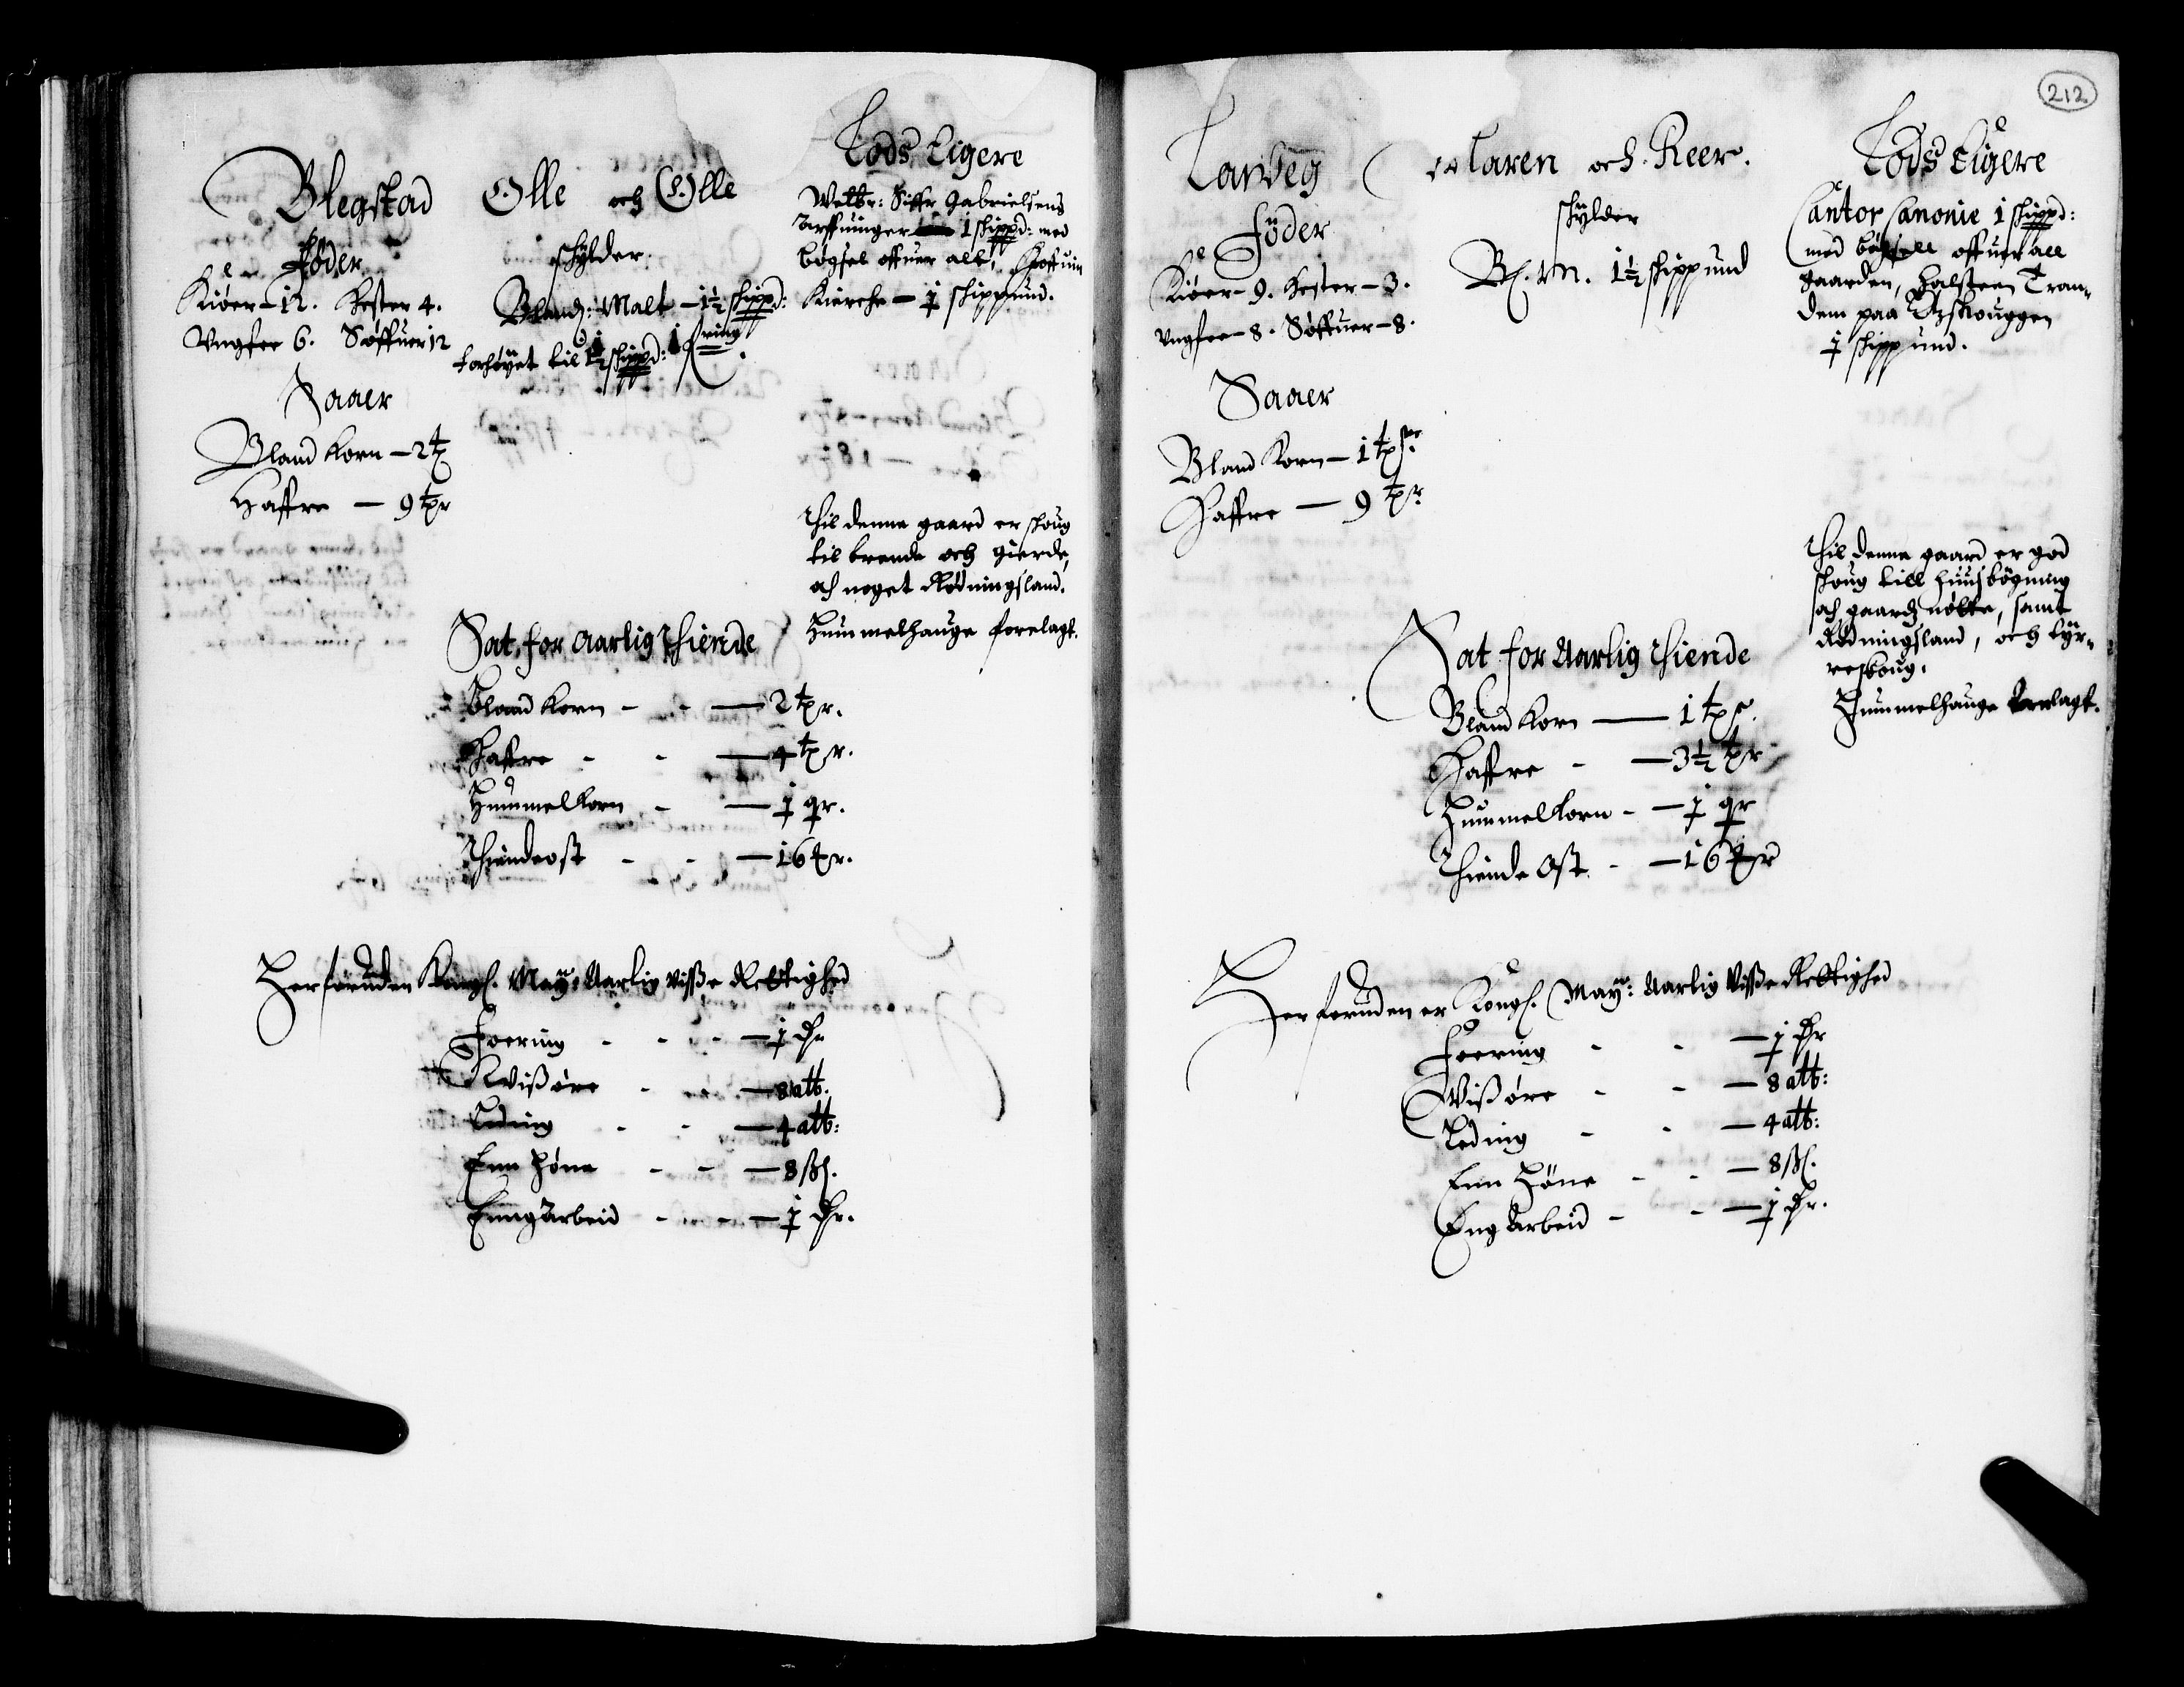 Blegstad Olle och Olle
Föder
Kiöer - 12. Hester 4.
Vngfee 6. Söffuer 12
Saaer
Bland Korn - 2 t
Haffre - 9 tpr
schylder.
Bland: Malt - 1½ schippd:
forhöyet til 1½ schippd: 1 fring
Lods Eigere
Welbr: Siffr Gabrielsens
arffuinger 1 schippd: med
bögsel offuer alt, Hoffuin
Kierche - 1 schippund.
Thil denne gaard er schoug
til brende och gierde,
och noget Rödningsland.
Hummelhauge forelagt.
Sat for Aarlig Thiende
Bland Korn - - 2 tpr.
Haffre - - 4 tpr.
Hummelkorn - 1 qr.
Thiendeost - - 16 r.
Herforuden Kongl. May: Aarlig Visse Rettighed
Foering - - - 1 dr
Wissöre - - 8 att:
Leding - - 4 att:
Enn Höne - - 8 ss.
Enngarbeid - - 1 dr.
212
Tarveg Taren och Reer.
Föder
Kiöer - 9. Hester - 3.
Vngfee - 8. Söffuer - 8.
Saaer
Bland Korn - 1 tpr
Haffre - 9 tpr
schylder
Bl. M. 1½ schippund
Lods Eigere
Cantor Canonie 1 schippd:
med bögsell offuer all
gaarden, Halsteen Tran-
dem paa Schouggen
1 schippund.
Thil denne gaard er god
schoug till huusbögning
och gaards nötte, samt
Rödningsland, och fyr-
reschoug.
Hummelhauge forelagt.
Sat for Aarlig Thiende
Bland Korn - 1 tpr.
Haffre - - 3½ tpr
Hummelkorn - 1 qr
Thiende Ost - 16 r
Herforuden er Kongl. May: Aarlig Visse Rettighed
Foering - - 1 dr
Wissöre - - 8 att:
Leding - - 4 att:
Enn Höne - - 8 ss.
Eng Arbeid - - 1 dr.